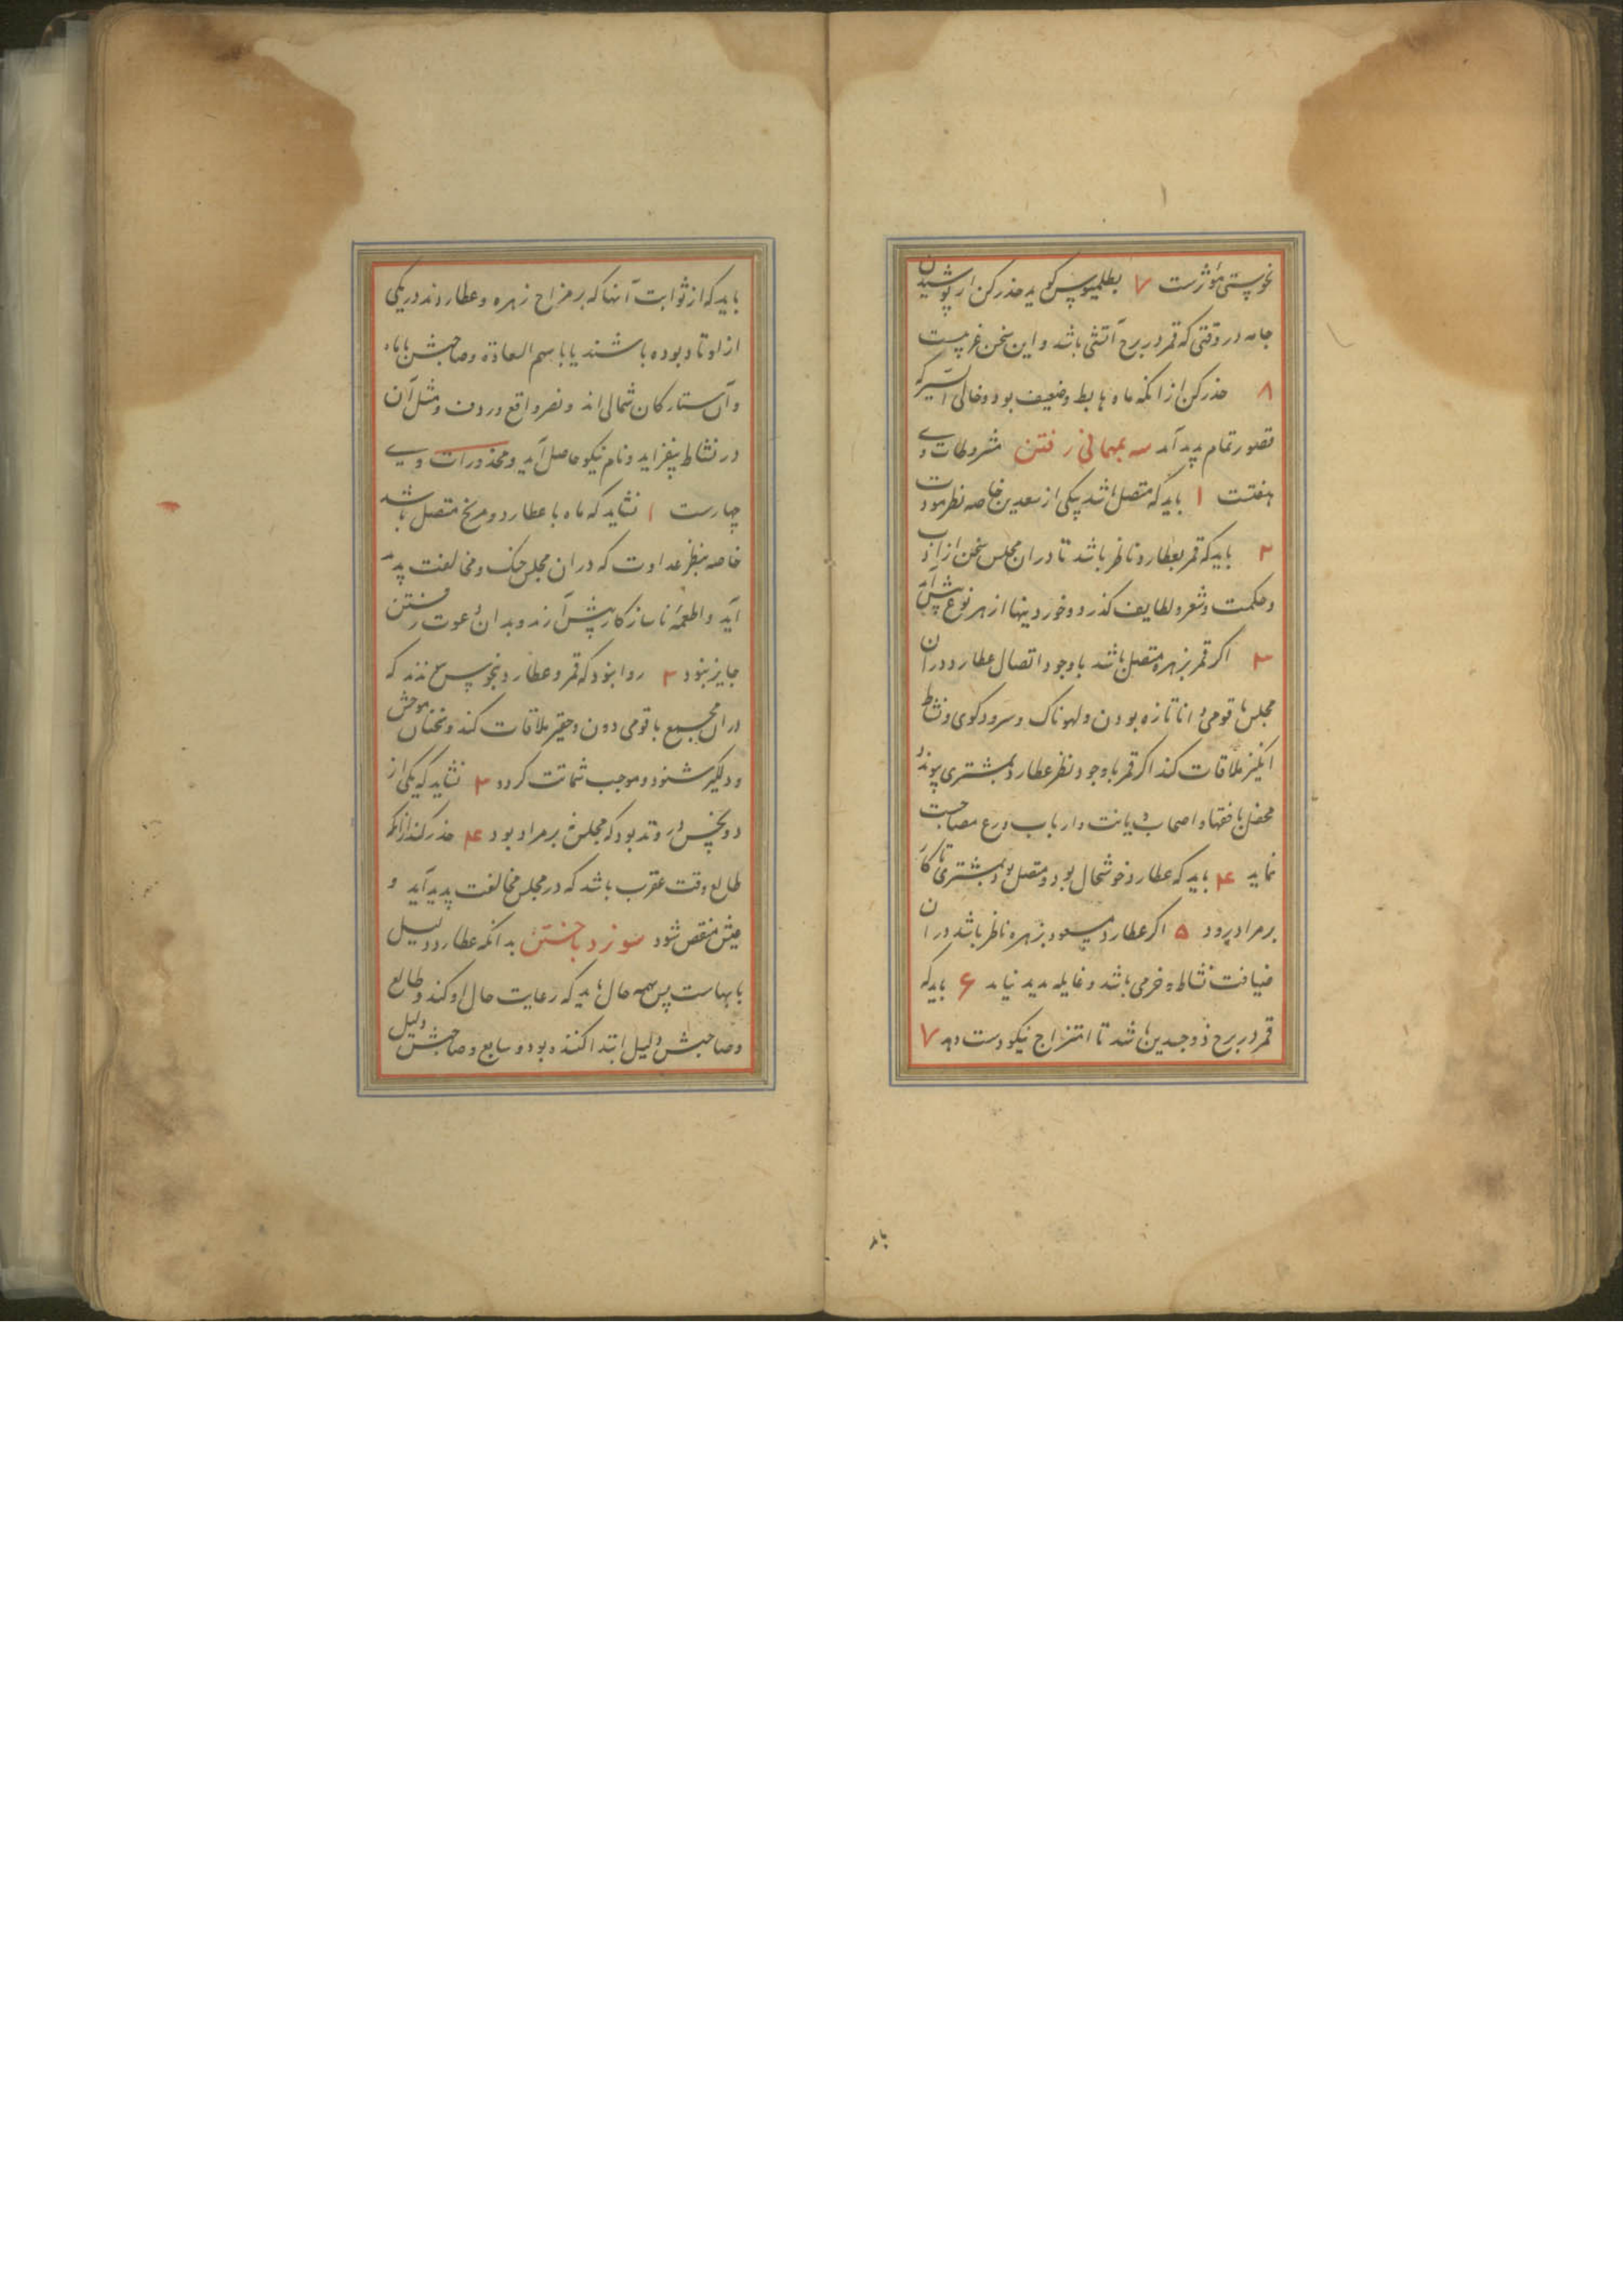 نحوستی مؤثرست ۷ بطلمیوس کوید حذر کن از پوشیدن
جامه در وقتی که قمر در برج آتشی باشد و این سخن غریبست
۸ حذر کن از انکه ماه هابط و ضعیف بود و خالی السیر که
قصور تمام پدید آمد سه بمهمانی رفتن مشروطات وی
هفتست ۱ باید که متصل باشد بیکی از سعدین خاصه نظر مودت
۲ باید که قمر بعطارد ناظر باشد تا در ان مجلس سخن از اداب
و حکمت و شعر و لطایف کذرد و خوردینها از هر نوع پیش آید
۳ اکر قمر بزهره متصل باشد با وجود اتصال عطارد در ان
مجلس با قومی تازه بودن و لهوناک و سرودکوی و نشاط
انکیز ملاقات کند اکر قمر با وجود نظر عطارد بمشتری پیوندد
محفل با فقها و اصحاب دیانت و ارباب ورع مصاحبت
نماید ۴ باید که عطارد خوشحال بود و متصل بود بمشتری تا کار
بر مراد برود ۵ اکر عطارد مسعود بزهره ناظر باشد در ان
ضیافت نشاط و خرمی باشد و غایله پدید نیاید ۶ باید که
قمر در برج ذوجسدین باشد تا امتزاج نیکو دست دهد ۷
باید
باید که از ثوابت آنها که بر مزاج زهره و عطاردند در یکی
از اوتاد بوده باشند یا با سهم السعادة و صاحبش یا ماه
و آن ستارکان شمالی اند و نصر واقع و ردف و مثل آن
در نشاط بیفزاید و نام نیکو حاصل آید و محذورات وی
چهارست ۱ نشاید که ماه با عطارد و مریخ متصل باشد
خاصه بنظر عداوت که در ان مجلس جنک و مخالفت پدید
آید و اطعمه ناسازکار پیش آرند و بدان دعوت رفتن
جایز نبود ۲ روا نبود که قمر و عطارد نحوس نذند که
در ان مجمع با قومی دون و حقیر ملاقات کند و سخنان موحش
و دلکیر شنود و موجب شماتت کردد ۳ نشاید که یکی از
دو نحس در وتد بود که مجلس نه بر مراد بود ۴ حذر کند از انکه
طالع وقت عقرب باشد که در مجلس مخالفت پدید آید و
عیش منغص شود سو نرد باختن بدانکه عطارد دلیل
بابهاست پس همه حال باید که رعایت حال او کند و طالع
و صاحبش دلیل ابتدا کننده بود و سابع و صاحبش دلیل